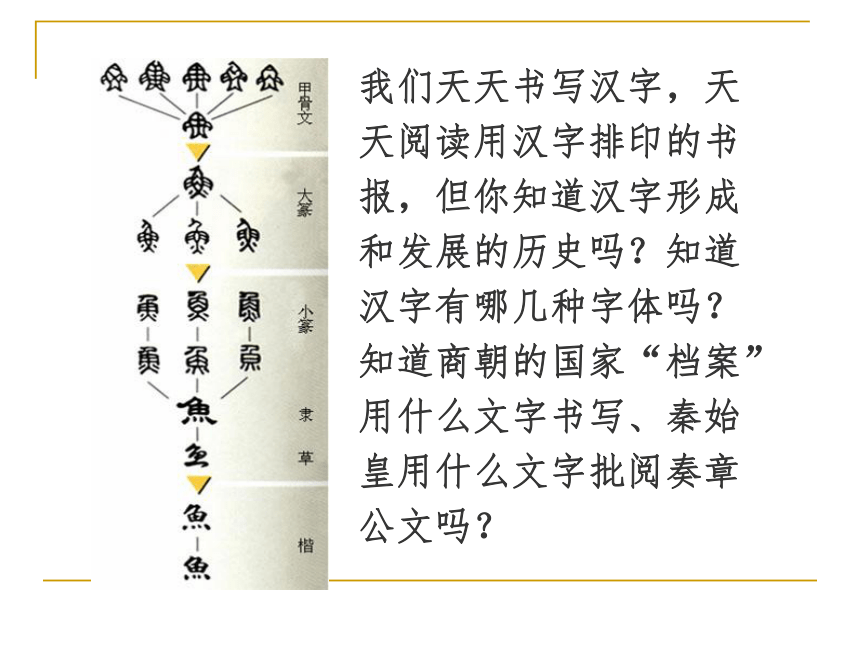 甲骨文
大篆
小篆
魚
隶
草
魚
楷
魚
我们天天书写汉字，天
天阅读用汉字排印的书
报，但你知道汉字形成
和发展的历史吗？知道
汉字有哪几种字体吗？
知道商朝的国家“档案”
用什么文字书写、秦始
皇用什么文字批阅奏章
公文吗？